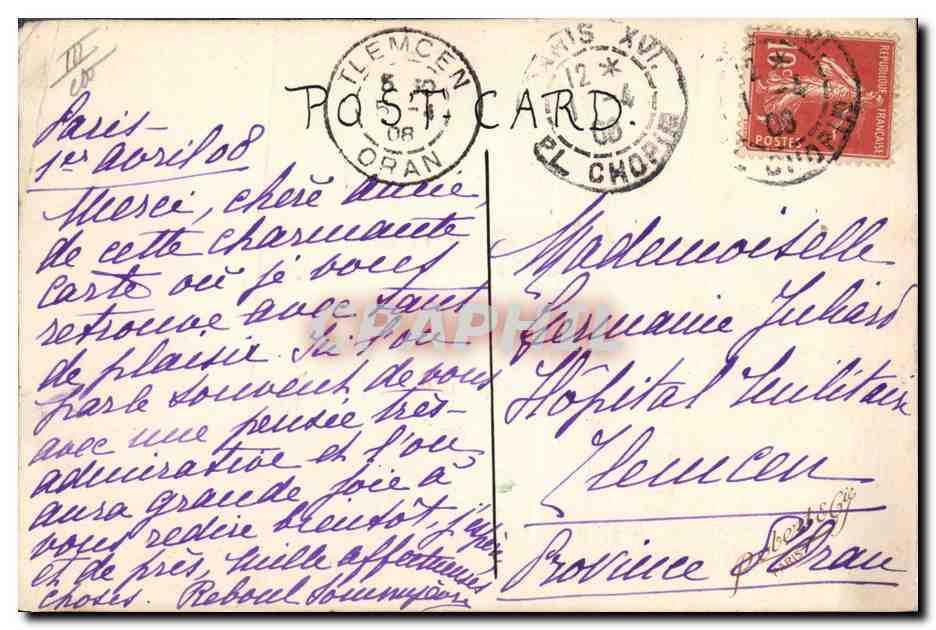 III
TLEMCEN
5-4
08
ORAN
PARIS XVI.
12 *
1 -4
08
PL. CHOPIN
REPUBLIQUE FRANÇAISE
POSTES
POST CARD.
Paris -
1er avril 08
Merci, chère amie,
de cette charmante
carte où je vous
retrouve avec tant
de plaisir. Ici l'on
parle souvent de vous
avec une pensée très
admirative et l'on
aura grande joie à
vous redire bientôt, j'espère
et de près, mille affectueuses
choses. Reboul
Mademoiselle
Germaine Juliard
Hôpital Militaire
Tlemcen
Province d'Oran
Robert & Cie
PARIS
CPAPHIL